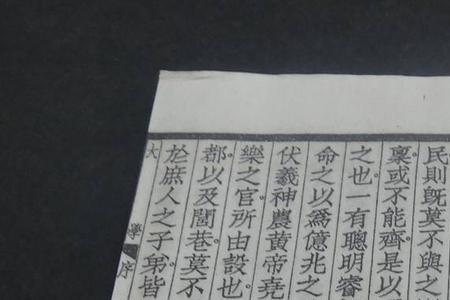 民則旣莫不與之
稟或不能齊是以
之也一有聰明睿
命之以爲億兆之
伏羲神農黃帝堯
樂之官所由設也
都以及閭巷莫不
於庶人之子弟皆
大學序